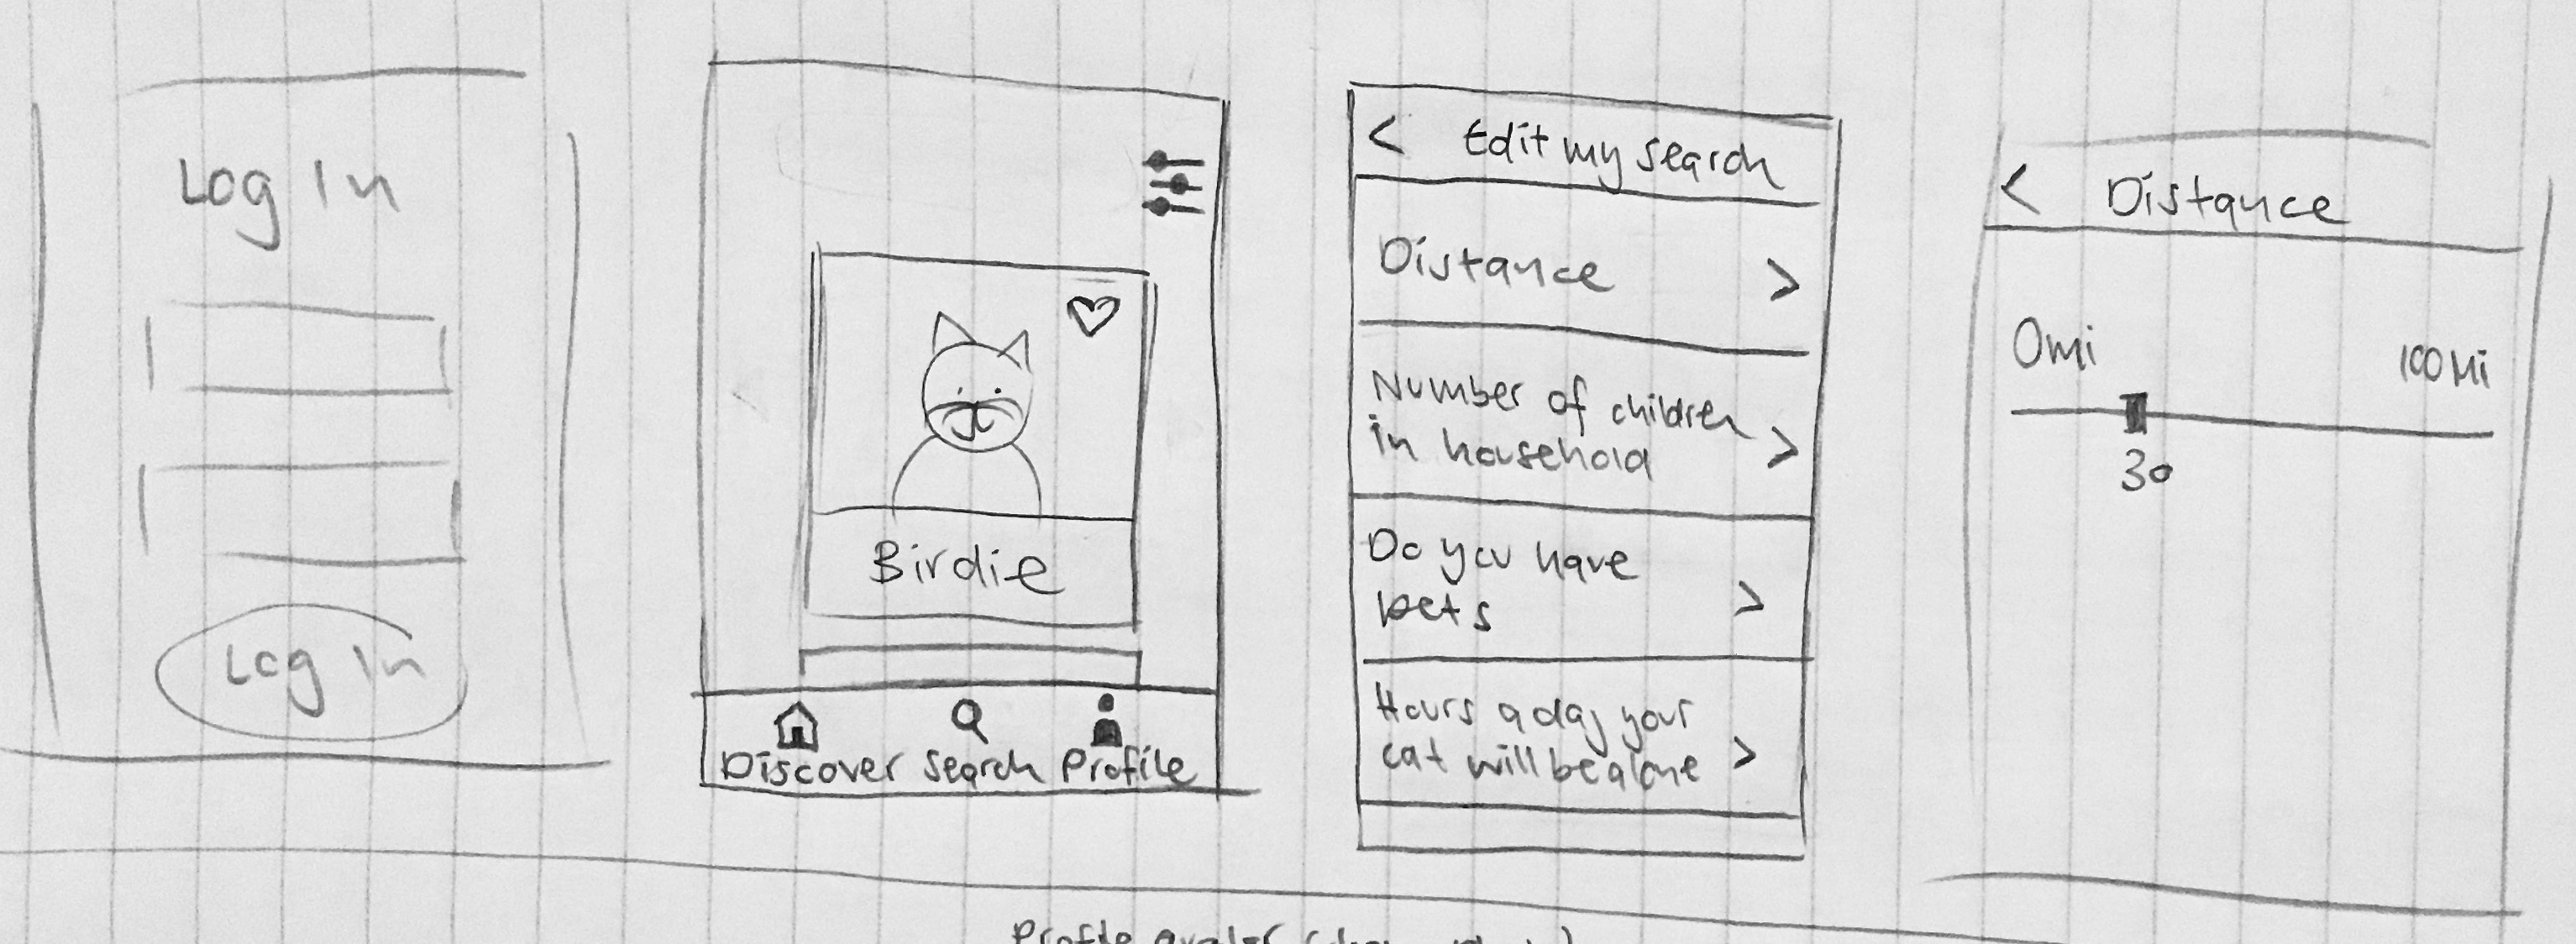 Log In
Log In
Birdie
Discover Search Profile
< Edit my search
Distance >
Number of children
in household >
Do you have
pets >
Hours a day your
cat will be alone >
< Distance
0mi 100Mi
30
Profile